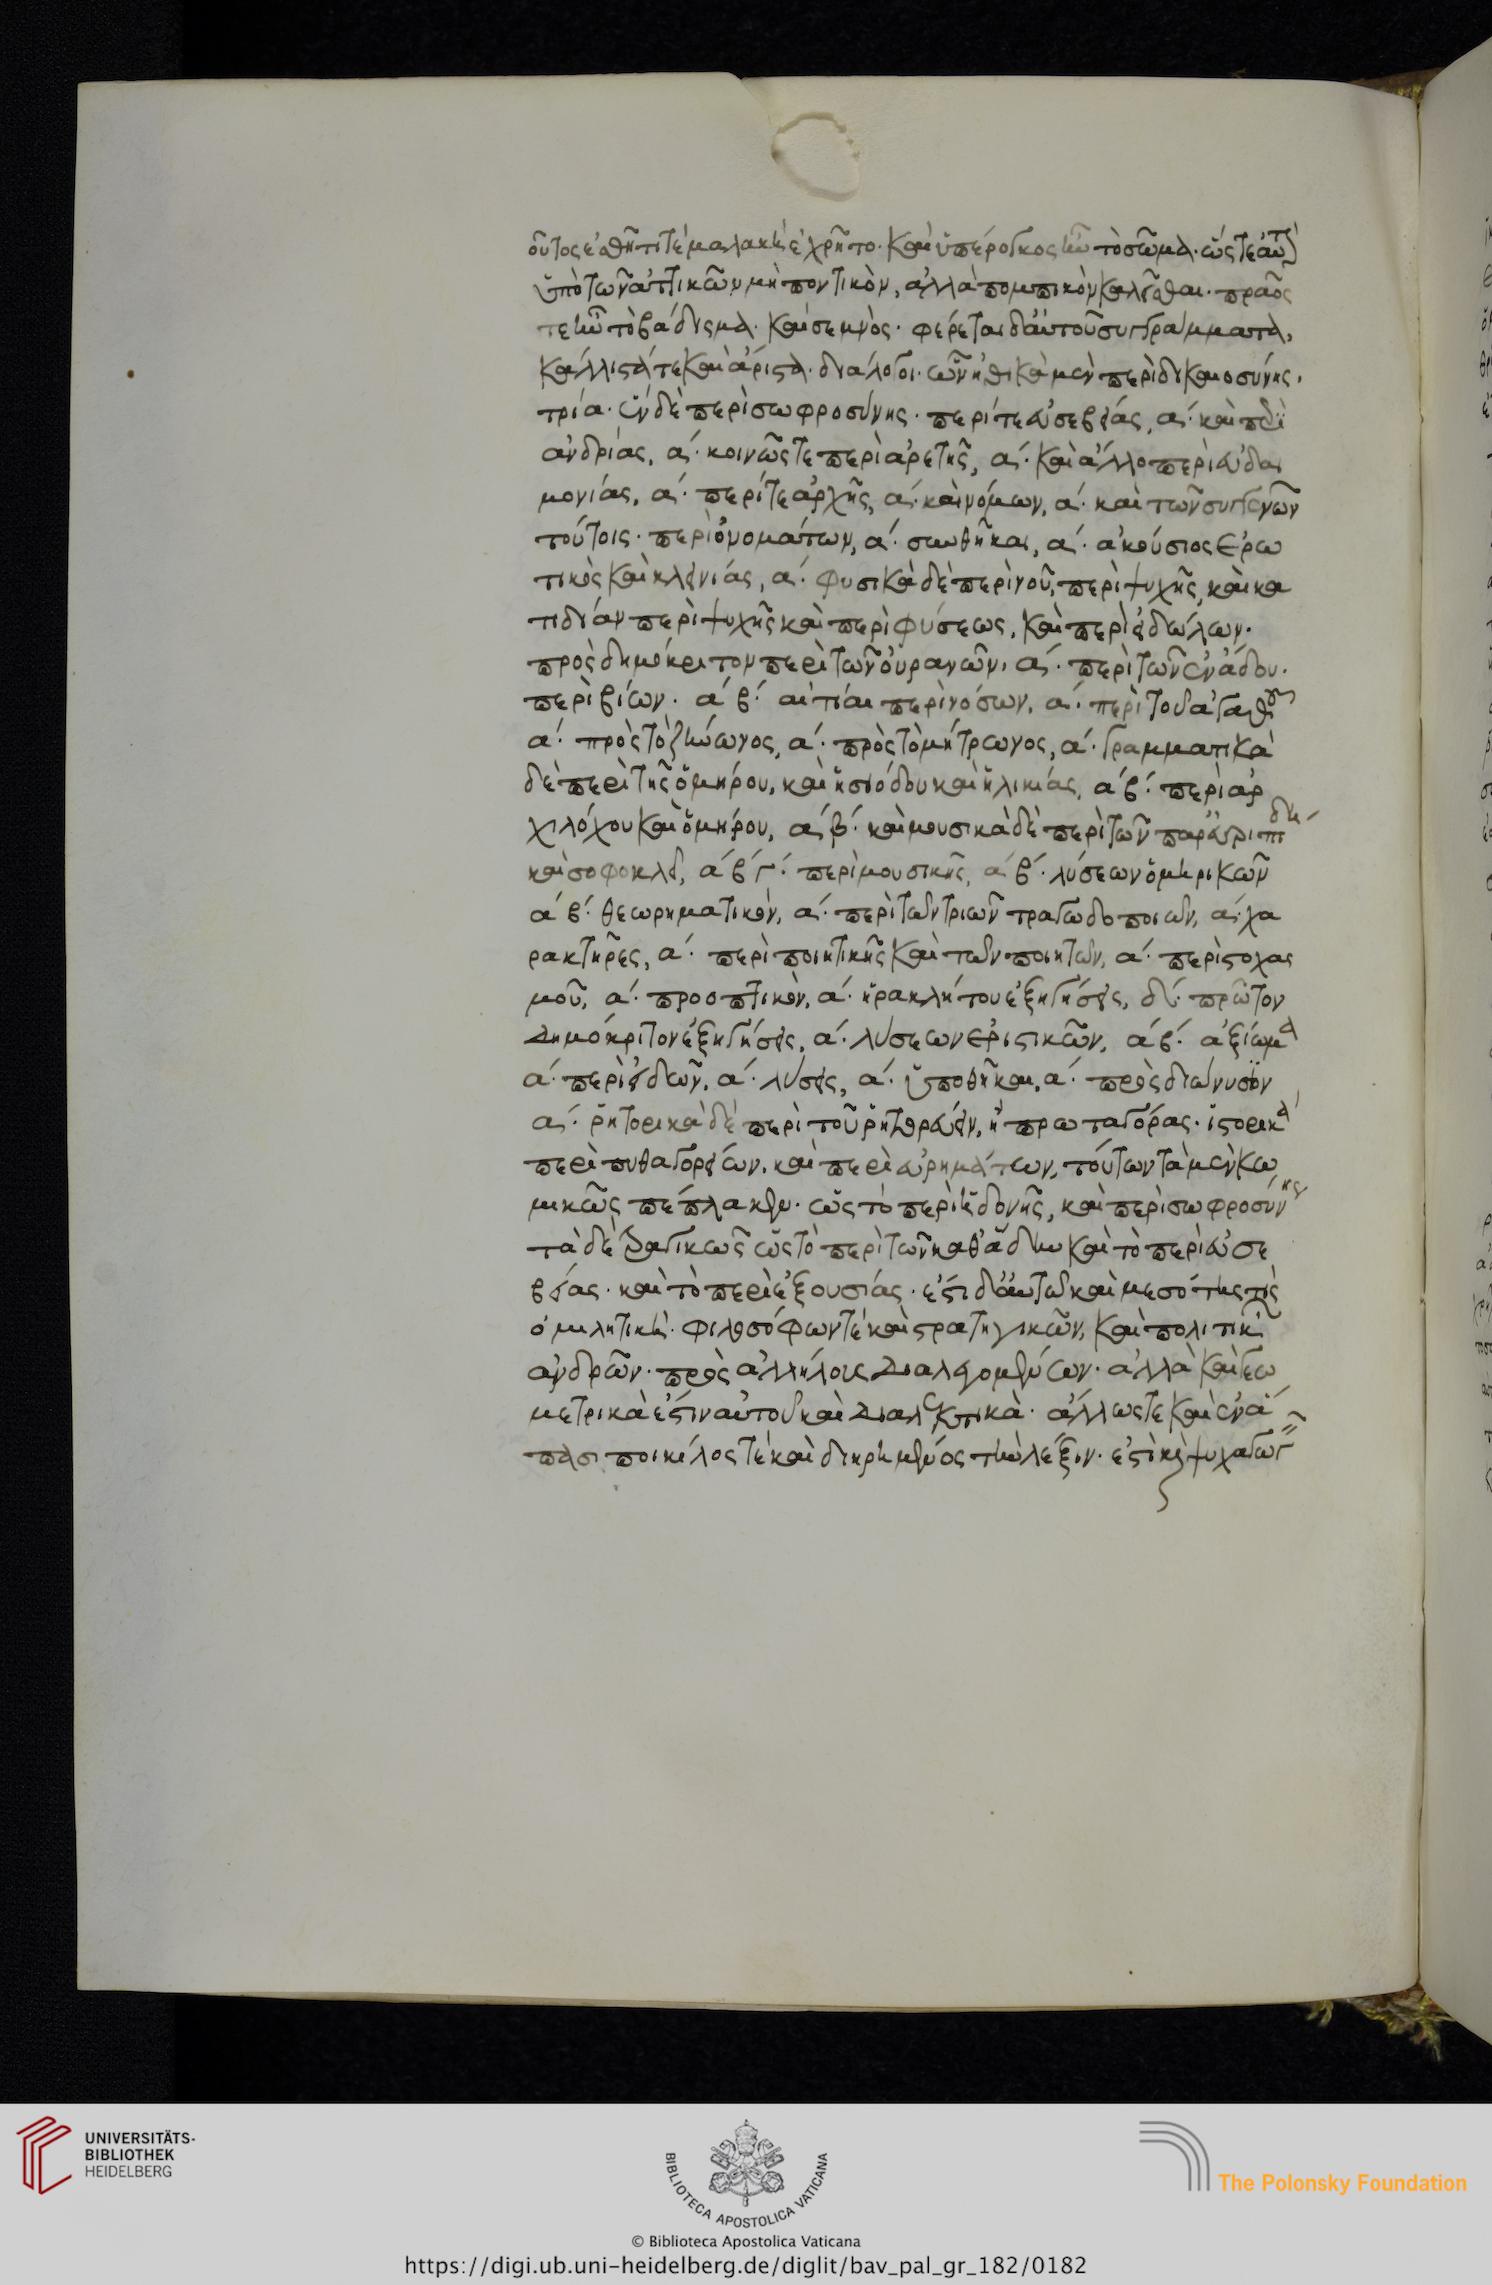 οὗτος ἐσθῆτί τε μαλακῆ ἐχρῆτο. καὶ ὑπέρογκος ἦν τὸ σῶμα. ὥς τε αὐτὸν
ὑπὸ τῶν ἀττικῶν μὴ ποντικὸν, ἀλλὰ πομπικὸν καλεῖσθαι. πρᾶος
τε ἦν τὸ βάδισμα. καὶ σεμνὸς. φέρεται δ' αὐτοῦ συγγράμματα,
κάλλιστά τε καὶ ἄριστα. διάλογοι. ὧν ἠθικὰ μὲν περὶ δικαιοσύνης,
τρία. ἓν δὲ περὶ σωφροσύνης. περί τε εὐσεβείας, α΄. καὶ περὶ
ἀνδρίας, α΄. κοινῶς τε περὶ ἀρετῆς, α΄. καὶ ἄλλο περὶ εὐδαι
μονίας, α΄. περί τε ἀρχῆς, α΄. καὶ νόμων, α΄. καὶ τῶν συγγενῶν
τούτοις. περὶ ὀνομάτων, α΄. συνθῆκαι, α΄. ἀκούσιος ἐρω
τικὸς καὶ κλεινίας, α΄. φυσικὰ δὲ περὶ νοῦ, περὶ ψυχῆς, καὶ κα
τιδίαν περὶ ψυχῆς καὶ περὶ φύσεως, καὶ περὶ εἰδώλων.
πρὸς δημόκριτον περὶ τῶν οὐρανῶν, α΄. περὶ τῶν ἐν ἅδου.
περὶ βίων. α΄ β΄. αἰτίαι περὶ νόσων, α΄. περὶ τοῦ ἀγαθοῦ
α΄. πρὸς τὸ ζήνωνος, α΄. πρὸς τὸ μήτρωνος, α΄. γραμματικὰ
δὲ περὶ τῆς ὁμήρου, καὶ ἡσιόδου καὶ ἡλικίας, α΄ β΄. περὶ ἀρ
χιλόχου καὶ ὁμήρου, α΄ β΄. καὶ μουσικὰ δὲ περὶ τῶν παρ' εὐριπίδη
καὶ σοφοκλεῖ, α΄ β΄ γ΄. περὶ μουσικῆς, α΄ β΄. λύσεων ὁμηρικῶν
α΄ β΄. θεωρηματικὸν, α΄. περὶ τῶν τριῶν τραγωδοποιῶν, α΄. χα
ρακτῆρες, α΄. περὶ ποιητικῆς καὶ τῶν ποιητῶν, α΄. περὶ στοχας
μοῦ, α΄. προσπτικὸν, α΄. ἡρακλήτου ἐξηγήσεις, δ΄. πρῶτον
δημόκριτον ἐξηγήσεις, α΄. λύσεων ἐριστικῶν, α΄ β΄. ἀξίωμα
α΄. περὶ εἰδῶν, α΄. λύσεις, α΄. ὑποθῆκαι, α΄. πρὸς διώνυσον
α΄. ῥητορικὰ δὲ περὶ τοῦ ῥητορεύειν, ἢ πρωταγόρας. ἱστορικὰ
περὶ πυθαγορείων, καὶ περὶ εὑρημάτων, τούτων τὰ μὲν κω
μικῶς πέπλακεν. ὡς τὸ περὶ ἡδονῆς, καὶ περὶ σωφροσύνης
τὰ δὲ τραγικῶς ὡς τὸ περὶ τῶν καθ' ἅδην καὶ τὸ περὶ εὐσε
βείας. καὶ τὸ περὶ ἐξουσίας. ἔστι δ' αὐτῶ καὶ μεσότης τὶς
ὁμιλητικὴ. φιλοσόφων τὲ καὶ στρατηγικῶν, καὶ πολιτικῶν
ἀνδρῶν. πρὸς ἀλλήλους διαλεγομένων. ἀλλὰ καὶ γεω
μετρικὰ ἐστιν αὐτοῦ καὶ διαλεκτικὰ. ἄλλως τε καὶ ἐν ἅ
πασι ποικίλος τὲ καὶ διηρημένος τὴν λέξιν. ἐστὶ καὶ ψυχαγωγ
UNIVERSITÄTS-
BIBLIOTHEK
HEIDELBERG
BIBLIOTECA APOSTOLICA VATICANA
The Polonsky Foundation
© Biblioteca Apostolica Vaticana
https://digi.ub.uni-heidelberg.de/diglit/bav_pal_gr_182/0182